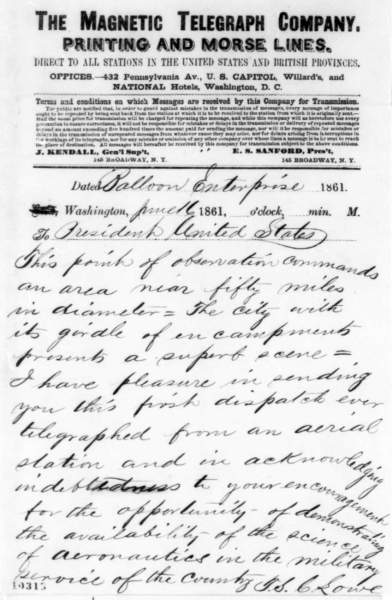 THE MAGNETIC TELEGRAPH COMPANY.
PRINTING AND MORSE LINES.
DIRECT TO ALL STATIONS IN THE UNITED STATES AND BRITISH PROVINCES.
OFFICES.—432 Pennsylvania Av., U. S. CAPITOL, Willard's, and
NATIONAL Hotels, Washington, D. C.
Terms and conditions on which Messages are received by this Company for Transmission.
J. KENDALL, Gen'l Sup't, E. S. SANFORD, Pres't,
145 BROADWAY, N. Y. 145 BROADWAY, N. Y.
Dated Balloon Enterprise 1861.
Washington, June 1861, o'clock, min. M.
To President United States
This point of observation commands
an area near fifty miles
in diameter = The city with
its girdle of encampments
presents a superb scene =
I have pleasure in sending
you this first dispatch ever
telegraphed from an aerial
station and in acknowledging
indebtedness to your encouragement
for the opportunity of demonstrating
the availability of the science
of aeronautics in the military
service of the country T. S. C. Lowe
10315